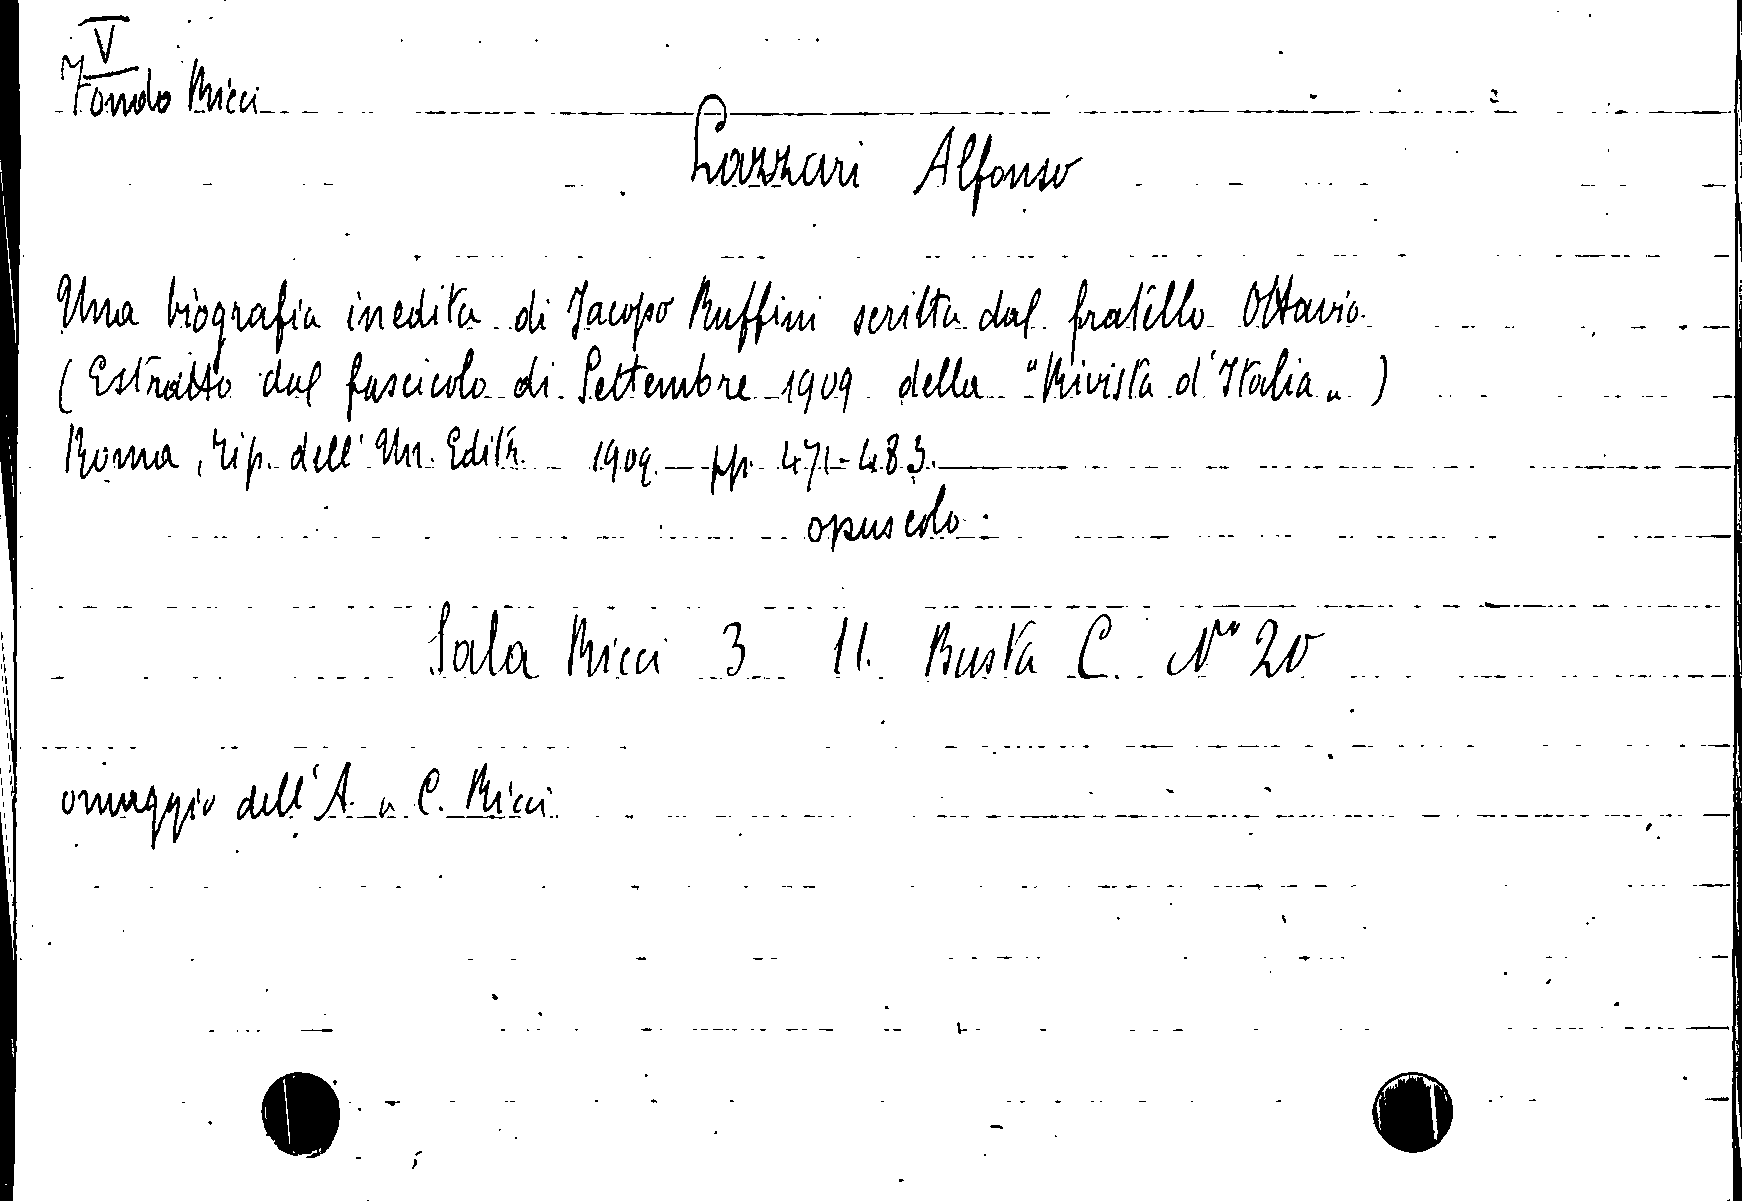 V
Fondo Ricci
Lazzari Alfonso
Una biografia inedita di Jacopo Ruffini scritta dal fratello Ottavio.
(Estratto dal fascicolo di Settembre 1909 della "Rivista d'Italia„)
Roma, Tip. dell'Un. Editr. 1909. — pp. 471-483.
opuscolo.
Sala Ricci 3 11. Busta C. No 20
omaggio dell'A. a C. Ricci